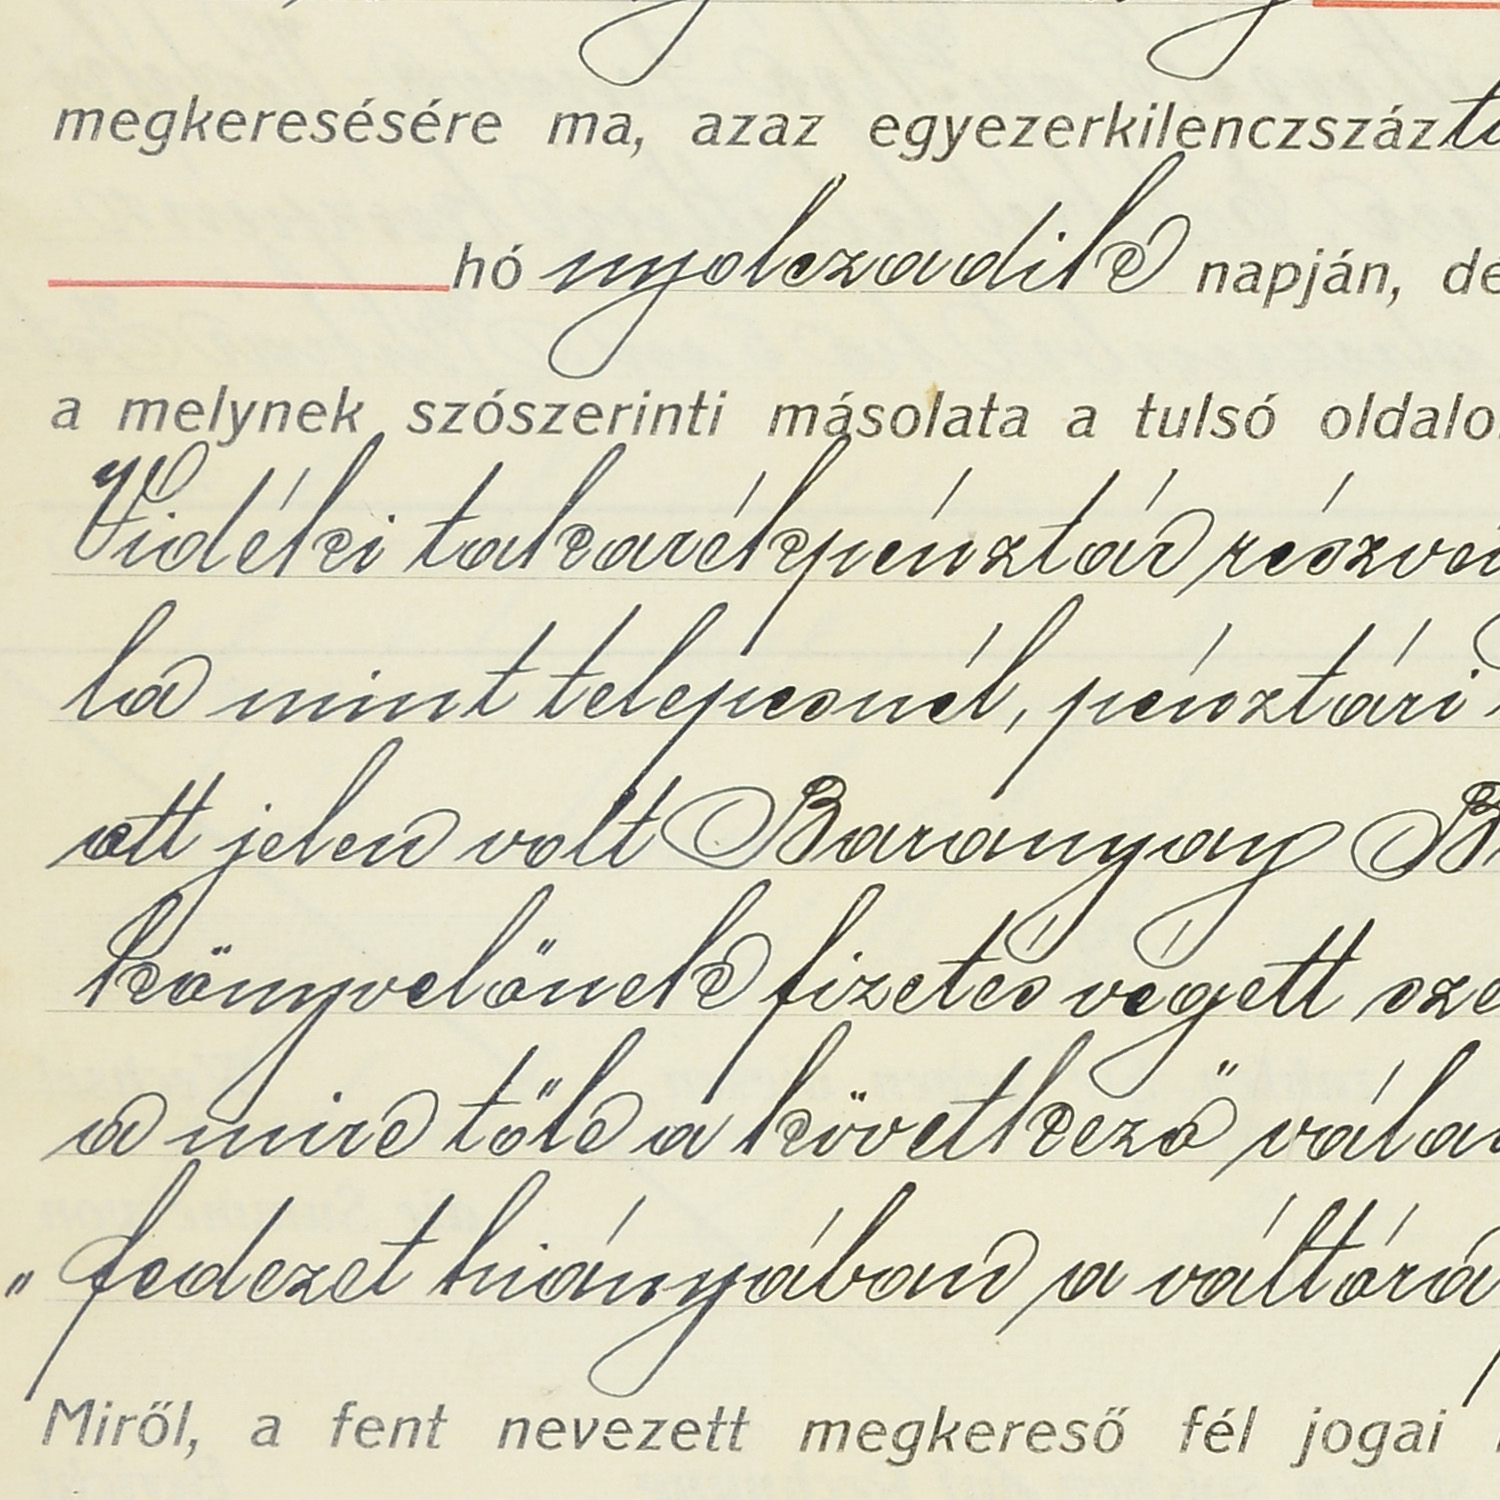 megkeresésére ma, azaz egyezerkilenczszáz
hó nyolczadik napján, de
a melynek szószerinti másolata a tulsó oldalo
Vidéki takarékpénztár részvén
la mint telepesnél, pénztári
ott jelen volt Baranyay B
könyvelőnek fizetés végett sze
a mire tőle a következő válas
„fedezet hiányában a váltóra
Miről, a fent nevezett megkereső fél jogai